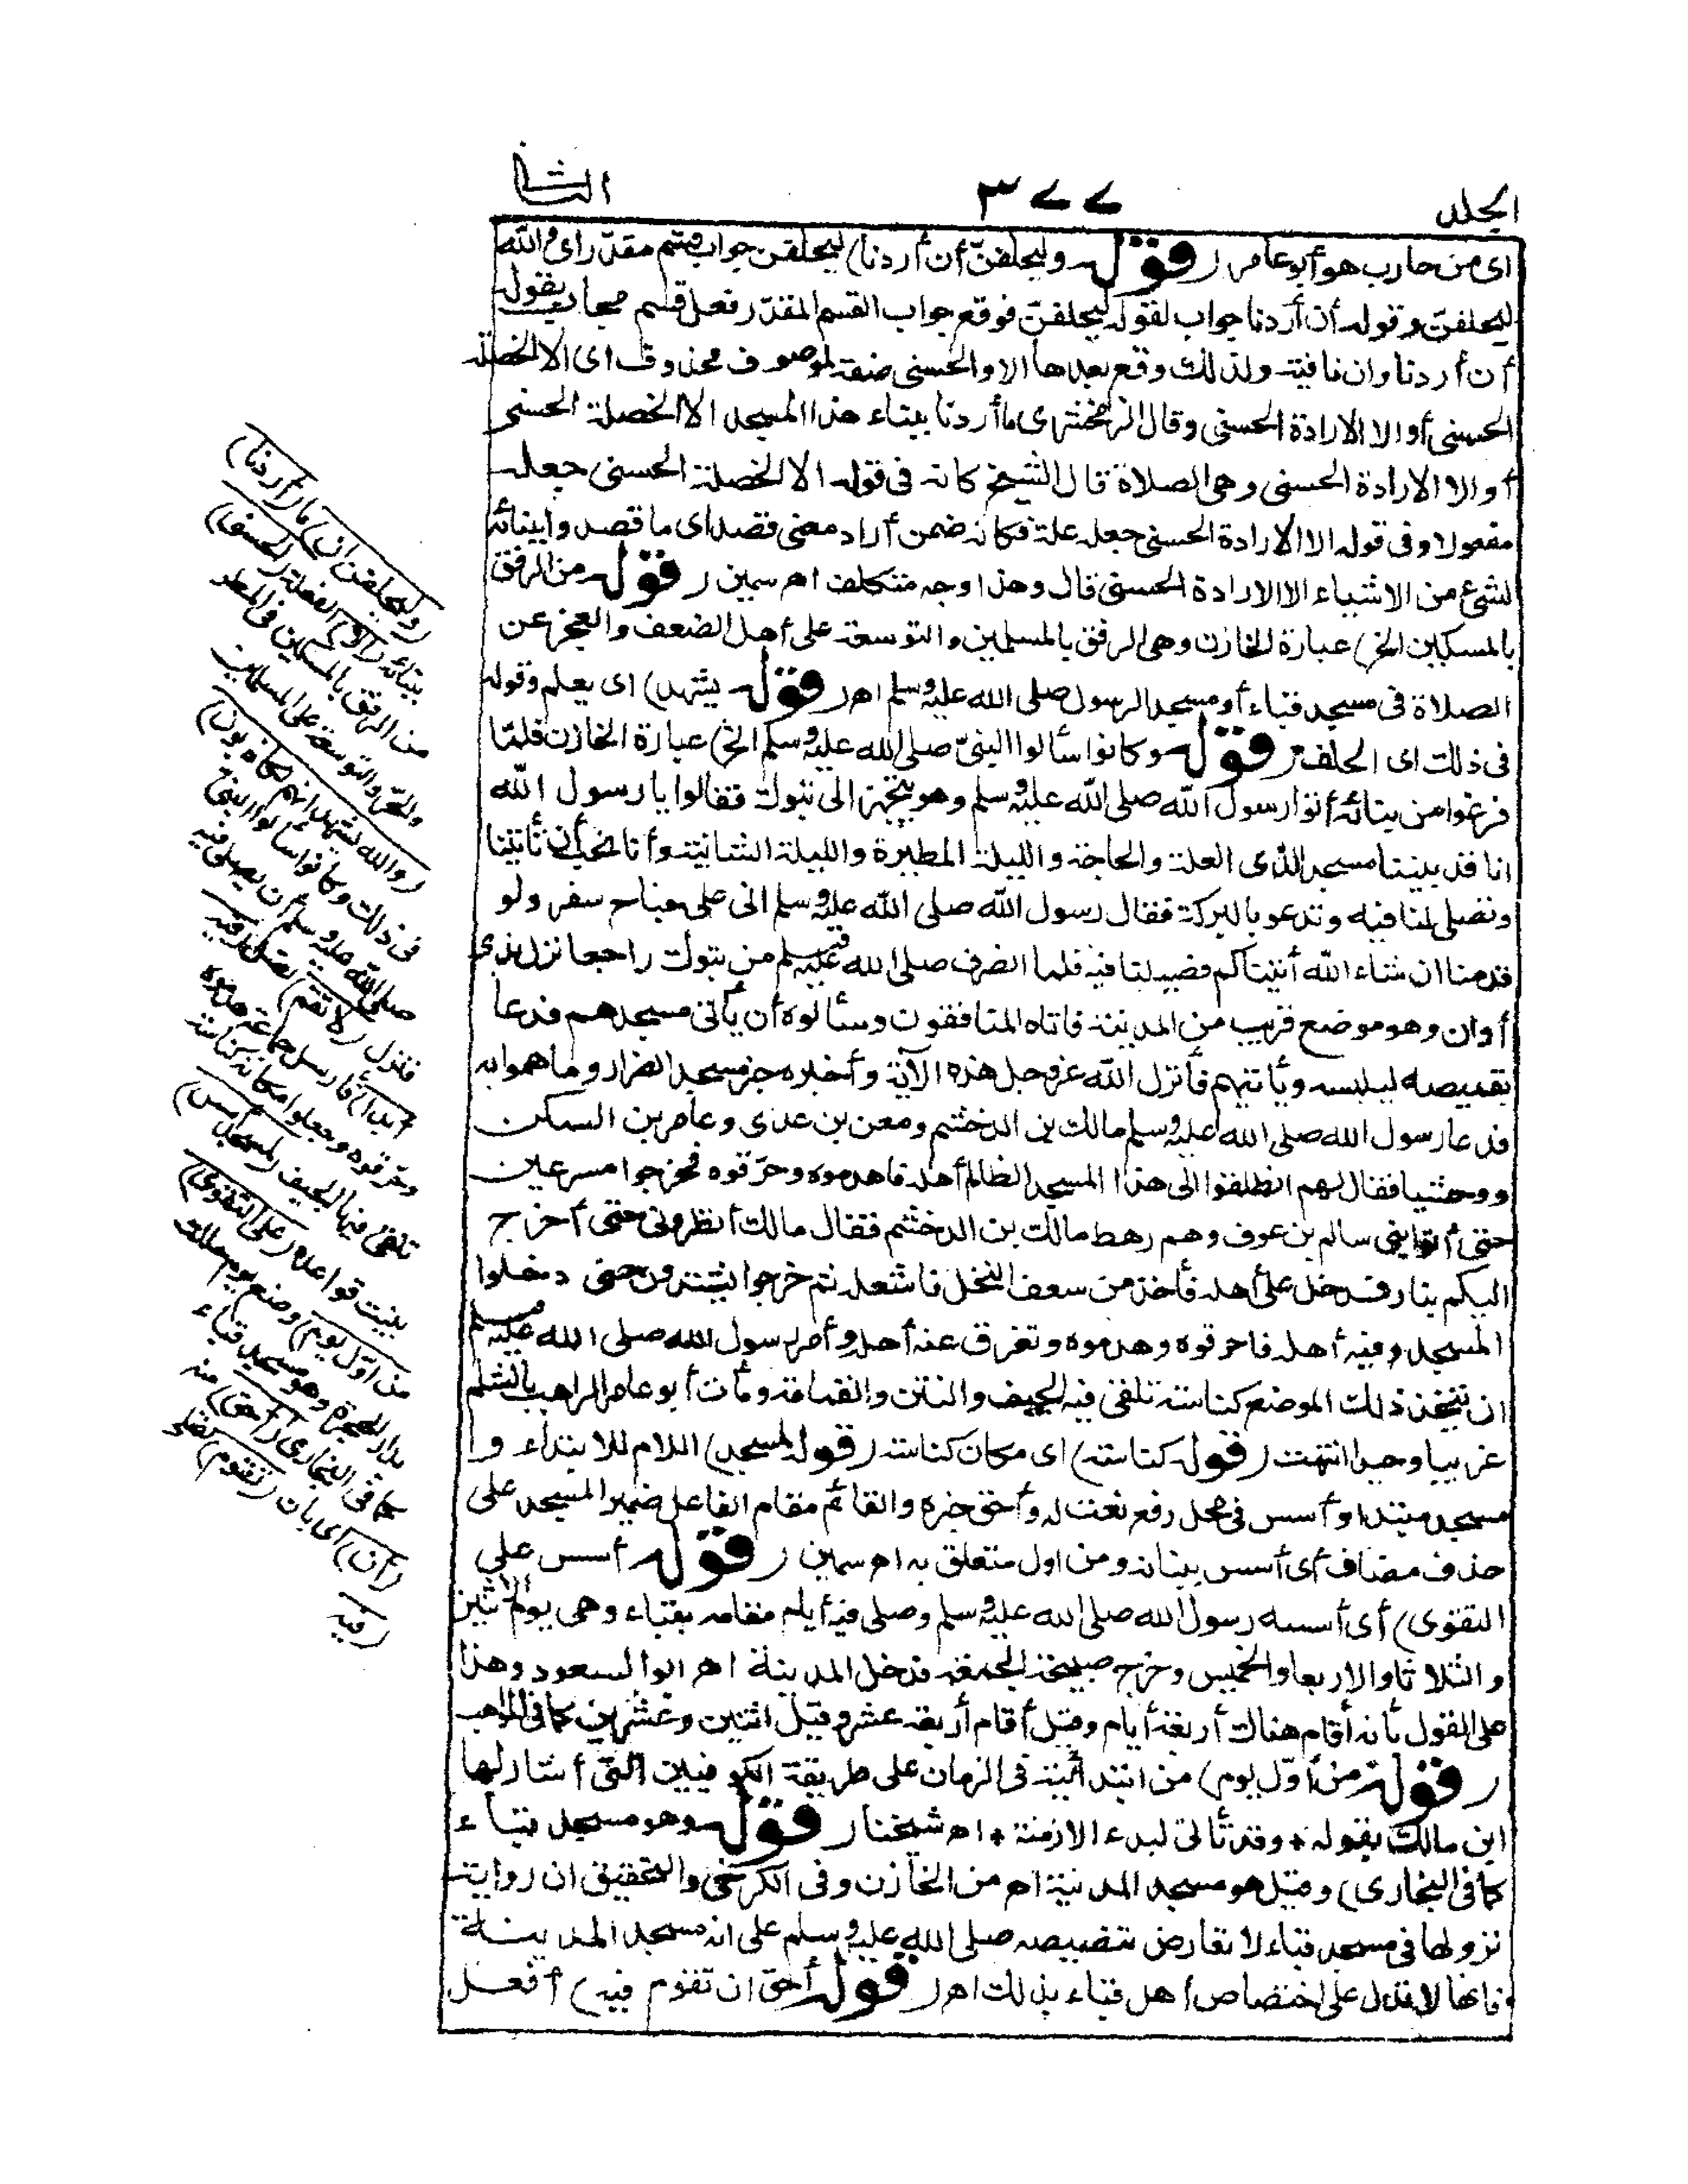 الجلد ٣٧٧ الثانى
اى من حارب هو أبو عامر (قوله وليحلفنّ أن أردنا) ليحلفن جواب قسم مقدّر اى والله
ليحلفنّ وقوله أن أردنا جواب لقوله ليحلفنّ فوقع جواب القسم المقدّر فعل قسم مجاب بقوله
أن أردنا وان نافية ولذلك وقع بعدها الا والحسنى صفة لموصوف محذوف اى الا الخصلة
الحسنى أو الا الارادة الحسنى وقال الزمخشرى ما أردنا ببناء هذا المسجد الا الخصلة الحسنى
أو الا الارادة الحسنى وهى الصلاة قال الشيخ كانه فى قوله الا الخصلة الحسنى جعله
مفعولا وفى قوله الا الارادة الحسنى جعله علة فكانه ضمن أراد معنى قصد اى ما قصدوا ببنائه
لشئ من الاشياء الا الارادة الحسنى قال وهذا وجه متكلف اهـ سمين (قوله من الرفق
بالمسكين الخ) عبارة الخازن وهى الرفق بالمسلمين والتوسعة على أهل الضعف والعجز عن
الصلاة فى مسجد قباء أو مسجد الرسول صلى الله عليه وسلم اهـ (قوله يشهد) اى يعلم وقوله
فى ذلك اى الحلف (قوله وكانوا سألوا النبىّ صلى الله عليه وسلم الخ) عبارة الخازن فلمّا
فرغوا من بنائه أتوا رسول الله صلى الله عليه وسلم وهو يتجهز الى تبوك فقالوا يا رسول الله
انا قد بنينا مسجدا لذى العلة والحاجة والليلة المطيرة والليلة الشاتية وأنا نحب أن تأتينا
وتصلى لنا فيه وتدعو بالبركة فقال رسول الله صلى الله عليه وسلم انى على جناح سفر ولو
قدمنا ان شاء الله أتيناكم فصلينا لكم فيه فلما انصرف صلى الله عليه وسلم من تبوك راجعا نزل بذى
أوان وهو موضع قريب من المدينة فاتاه المنافقون وسألوه أن يأتى مسجدهم فدعا
بقميصه ليلبسه ويأتيهم فأنزل الله عز وجل هذه الآية وأخبره خبر مسجد الضرار وما هموا به
فدعا رسول الله صلى الله عليه وسلم مالك بن الدخشم ومعن بن عدى وعامر بن السكن
ووحشيا فقال لهم انطلقوا الى هذا المسجد الظالم أهله فاهدموه وحرّقوه فخرجوا مسرعين
حتى أتوا بنى سالم بن عوف وهم رهط مالك بن الدخشم فقال مالك أنظرونى حتى أخرج
اليكم بنار فدخل على أهله فأخذ من سعف النخل فاشعله ثم خرجوا يشتدون حتى دخلوا
المسجد وفيه أهله فاحرقوه وهدموه وتفرق عنه أهله وأمر رسول الله صلى الله عليه وسلم
ان يتخذ ذلك الموضع كناسة تلقى فيه الجيف والنتن والقمامة ومات أبو عامر الراهب بالشام
غريبا وحيدا انتهت (قوله كناسة) اى مكان كناسة (قوله لمسجد) اللام للابتداء و
مسجد مبتدا وأسس فى محل رفع نعت له وأحق خبره والقائم مقام الفاعل ضمير المسجد على
حذف مضاف أى أسس بنيانه ومن اول متعلق به اهـ سمين (قوله أسس على
التقوى) أى أسسه رسول الله صلى الله عليه وسلم وصلى فيه أيام مقامه بقباء وهى يوم الاثنين
والثلاثا والاربعا والخميس وخرج صبيحة الجمعة فدخل المدينة اهـ ابو السعود وهذا
على القول بأنه أقام هناك أربعة أيام وقيل أقام أربعة عشر وقيل اثنين وعشرين كما فى المواهب
(قوله من أوّل يوم) من ابتدائية فى الزمان على طريقة الكوفيين التى أشار لها
ابن مالك بقوله * وقد تأتى لبدء الازمنة * اهـ شيخنا (قوله وهو مسجد قباء
كما فى البخارى) وقيل هو مسجد المدينة اهـ من الخازن وفى الكرخى والتحقيق ان رواية
نزولها فى مسجد قباء لا تعارض تنصيصه صلى الله عليه وسلم على انه مسجد المدينة
فانها لا تدل على اختصاص أهل قباء بذلك اهـ (قوله أحق ان تقوم فيه) أفعل
(وليحلفن ان) ما (أردنا)
ببنائه (الا) الفعلة (الحسنى)
من الرفق بالمسكين فى المطر
والحر والتوسعة على المسلمين
(والله يشهد انهم لكاذبون)
فى ذلك وكانوا سألوا النبىّ
صلى الله عليه وسلم أن يصلى فيه
فنزل (لا تقم) تصل (فيه
أبدا) فارسل جماعة هدموه
وحرّقوه وجعلوا مكانه كناسة
تلقى فيها الجيف (لمسجد أسس)
بنيت قواعده (على التقوى
من أوّل يوم) وضع يوم حللت
بدار الهجرة وهو مسجد قباء
كما فى البخارى (أحق) منه
(أن) اى بأن (تقوم) تصلى
(فيه